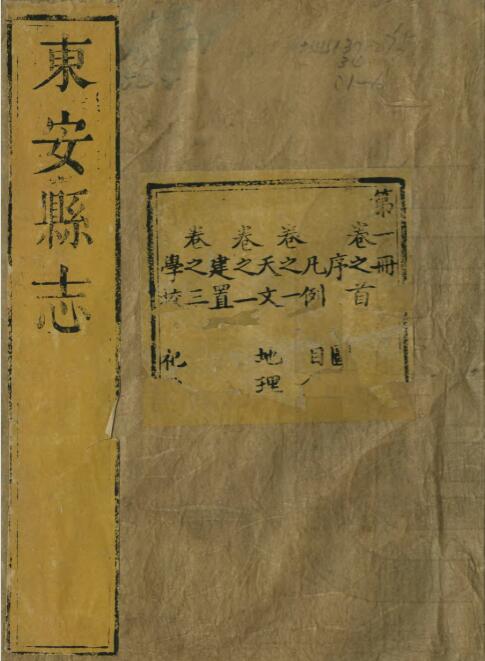 東安縣志
第一冊
卷之首
序 圖
凡例 目
卷之一
天文 地理
卷之二
建置
卷之三
學校 祀